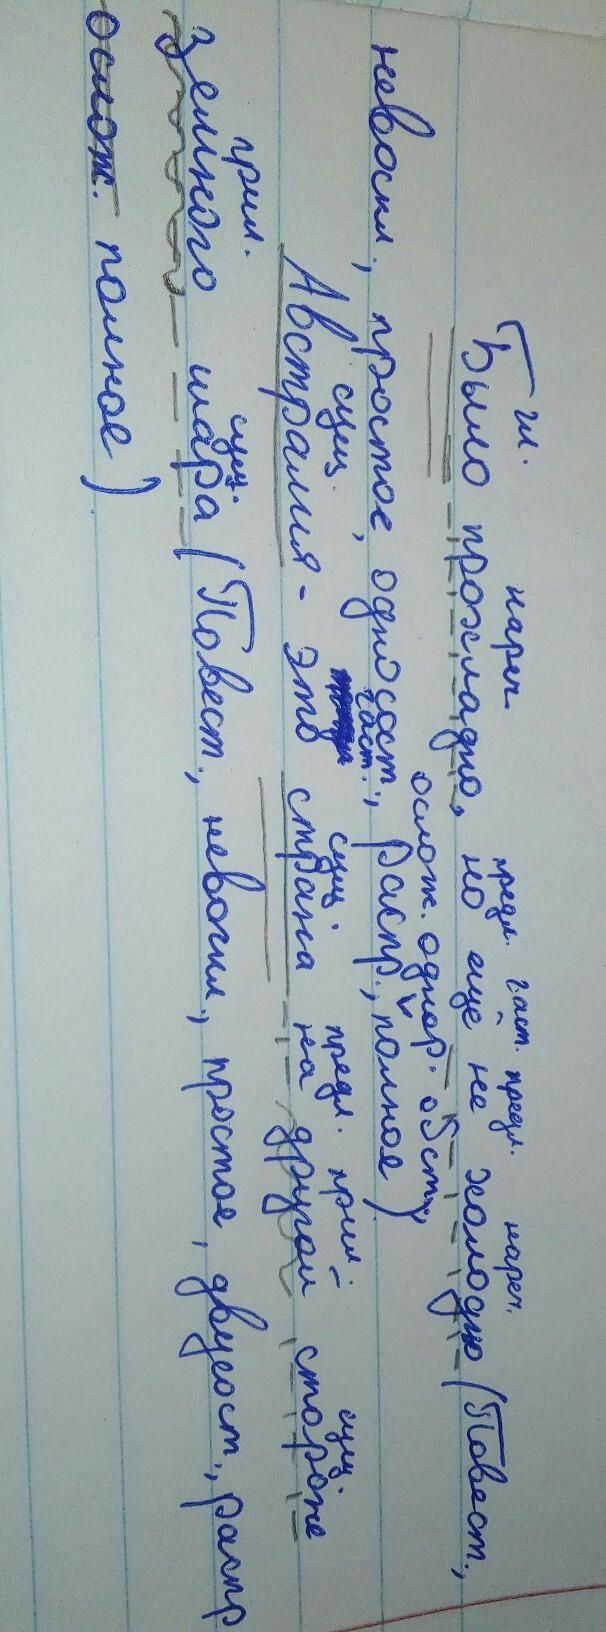 гл. нареч. предл. част. предл. нареч.
Было прохладно, но ещё не холодно (Повест.,
ослож. однор. обст.
невоскл., простое, односост., распр., полное)
сущ. част. сущ. предл. прил. сущ.
Австралия - это страна на другой стороне
прил. сущ.
земного шара (Повест., невоскл., простое, двусост., распр
ослож. полное)